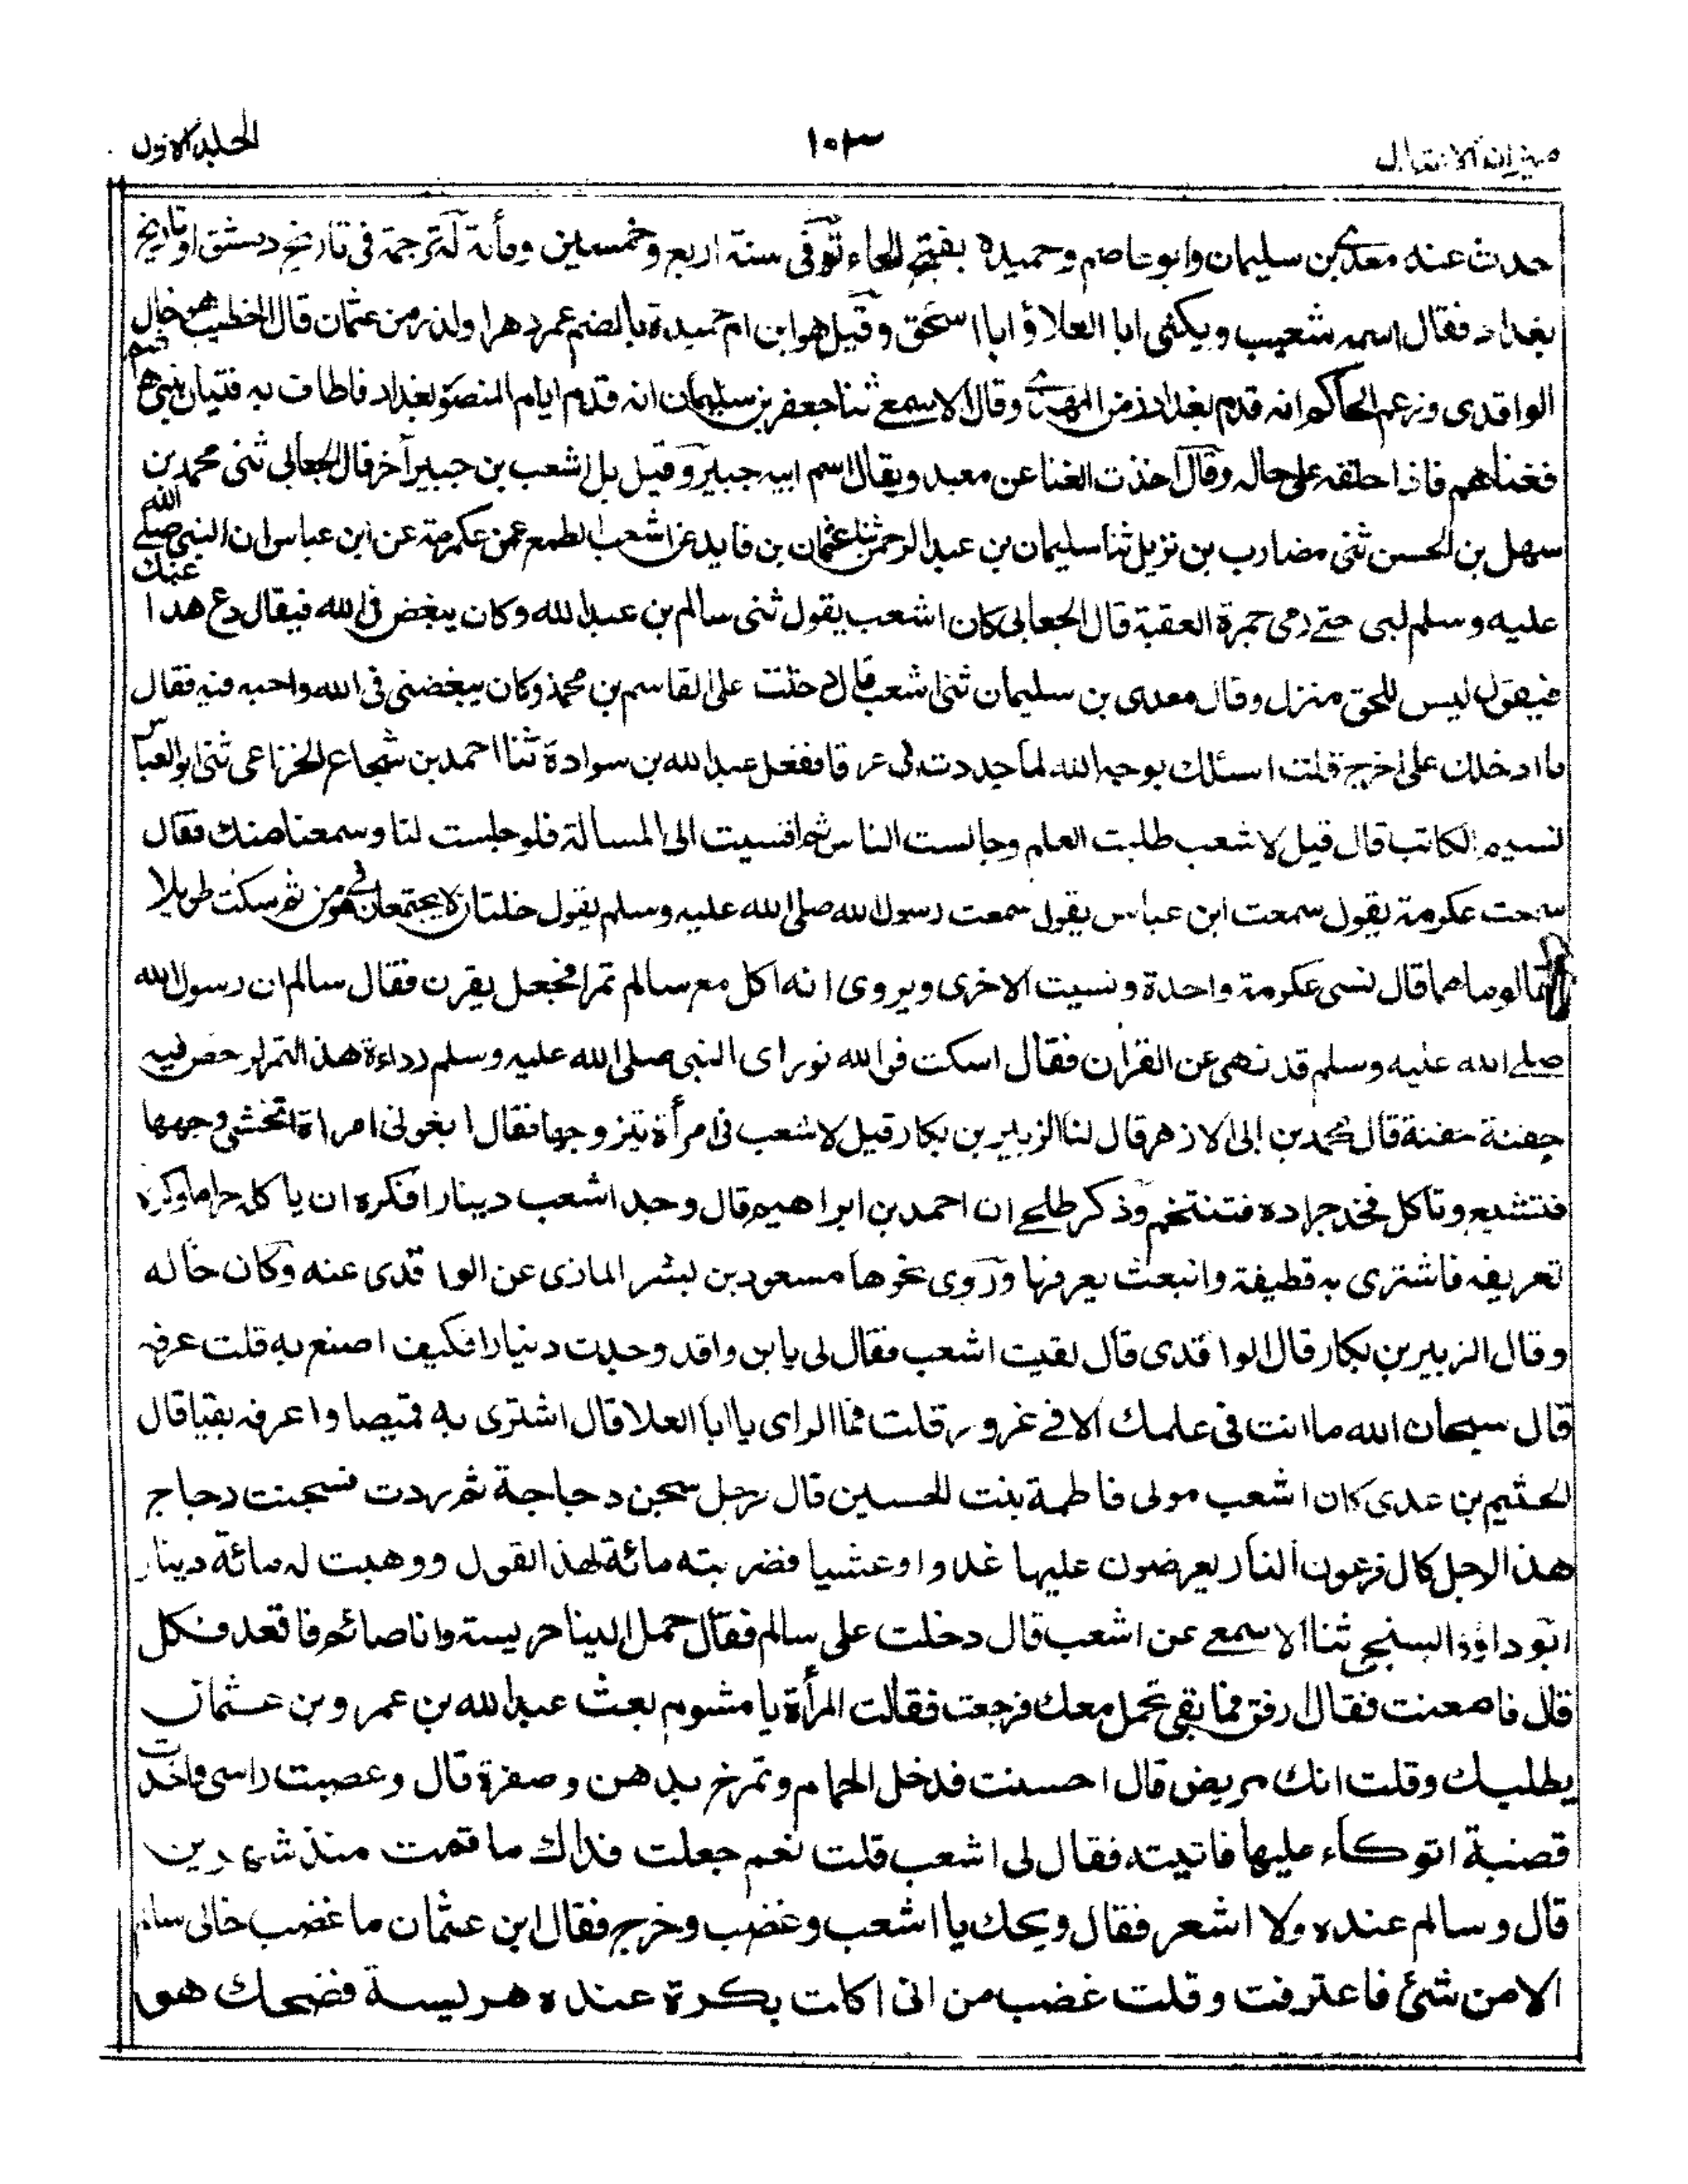 ميزان الاعتدال
١٠٣
الجلد الاول
حدث عنه معدي بن سليمان وابو عاصم وحميدة بفتح الحاء توفى سنة اربع وخمسين ومأئة له ترجمة فى تاريخ دمشق او تاريخ
بغداد فقال اسمه شعيب ويكنى ابا العلاؤ ابا اسحق وقيل هو ابن ام حميدة بالضم عمر دهرا ولد زمن عثمان قال الخطيب هو خال
الواقدى وزعم الحاكم انه قدم بغداد زمن المهدي وقال الاسمع ثنا جعفر بن سليمان انه قدم ايام المنصور بغداد فاطاف به فتيان بنى هاشم
فغناهم فاذا حلقه على حاله وقال اخذت الغنا عن معبد ويقال اسم ابيه جبير وقيل بل اشعب بن جبير آخر قال الجعابى ثنى محمد بن
سهل بن الحسن ثنى مضارب بن نزيل ثنا سليمان بن عبد الرحمن ثنا عثمان بن فايد عن اشعب الطمع عن عكرمة عن ابن عباس ان النبى صلے الله
عليه وسلم لبى حتے رمى جمرة العقبة قال الجعابى كان اشعب يقول ثنى سالم بن عبد الله وكان يبغض فى الله فيقال دع هذا عنك
فيقول ليس للحق منزل وقال معدى بن سليمان ثنى اشعب قال دخلت على القاسم بن محمد وكان يبغضنى فى الله واحبه فيه فقال
ما ادخلك على اخرج قلت اسئلك بوجه الله لما جددت لى عرقا ففعل عبد الله بن سوادة ثنا احمد بن شجاع الخزاعى ثنى ابو العباس
نسيم الكاتب قال قيل لاشعب طلبت العلم وجالست الناس ثم افسيت الى المسألة فلو جلست لنا وسمعنا منك فقال
سمعت عكرمة يقول سمعت ابن عباس يقول سمعت رسول الله صلى الله عليه وسلم يقول خلتان لا يجتمعان فى مومن ثم سكت طويلا
فقالو ما هما قال نسى عكرمة واحدة ونسيت الاخرى ويروى انه اكل مع سالم تمرا فجعل يقرن فقال سالم ان رسول الله
صلے الله عليه وسلم قد نهى عن القران فقال اسكت فو الله نو راى النبى صلى الله عليه وسلم رداءة هذ التمر لرخص فيه
حفنة حفنة قال محمد بن ابى الازهر قال لنا الزبير بن بكار قيل لاشعب فى امرأة يتزوجها فقال ابغونى امراة اتخشى وجهها
فتشبع وتاكل فخذ جرادة فتنتخم وذكر طلحے ان احمد بن ابراهيم قال وجد اشعب دينارا فكره ان ياكل حراما وكره
تعريفه فاشترى به قطيفة وانبعث يعرفها وروى نحوها مسعود بن بشر المازى عن الواقدى عنه وكان خاله
وقال الزبير بن بكار قال الواقدى قال لقيت اشعب فقال لى يا بن واقد وجدت دنيارا فكيف اصنع به قلت عرفه
قال سبحان الله ما انت فى علمك الا فے غرور قلت فما الراى يا ابا العلا قال اشترى به قميصا واعرفه بقبا قال
الحثيم بن عدى كان اشعب مولى فاطمة بنت الحسين قال رجل سجن دجاجة ثم ردت فسجنت دجاج
هذا الرجل كال فرعون النار يعرضون عليها غدوا وعشيا فضربته مائة لهذا القول ووهبت له مائة دينار
ابو داؤد السنجى ثنا الاسمعے عن اشعب قال دخلت على سالم فقال حمل الينا حريسة وانا صائم فاقعد فكل
قال فامعنت فقال ارفق فما بقى تحمل معك فرجعت فقالت المرأة يا مشوم بعث عبد الله بن عمر وبن عثمان
يطلبك وقلت انك مريض قال احسنت فدخل الحمام وتمرخ بدهن وصفرة قال وعصبت راسى واخذت
قصبة اتوكاء عليها فاتيته فقال لى اشعب قلت نعم جعلت فداك ما قمت منذ شهرين
قال وسالم عنده ولا اشعر فقال ويحك يا اشعب وغضب وخرج فقال ابن عثمان ما غضب خالى سالم
الا من شئ فاعترفت وقلت غضب من انى اكلت بكرة عنده هريسة فضحك هو